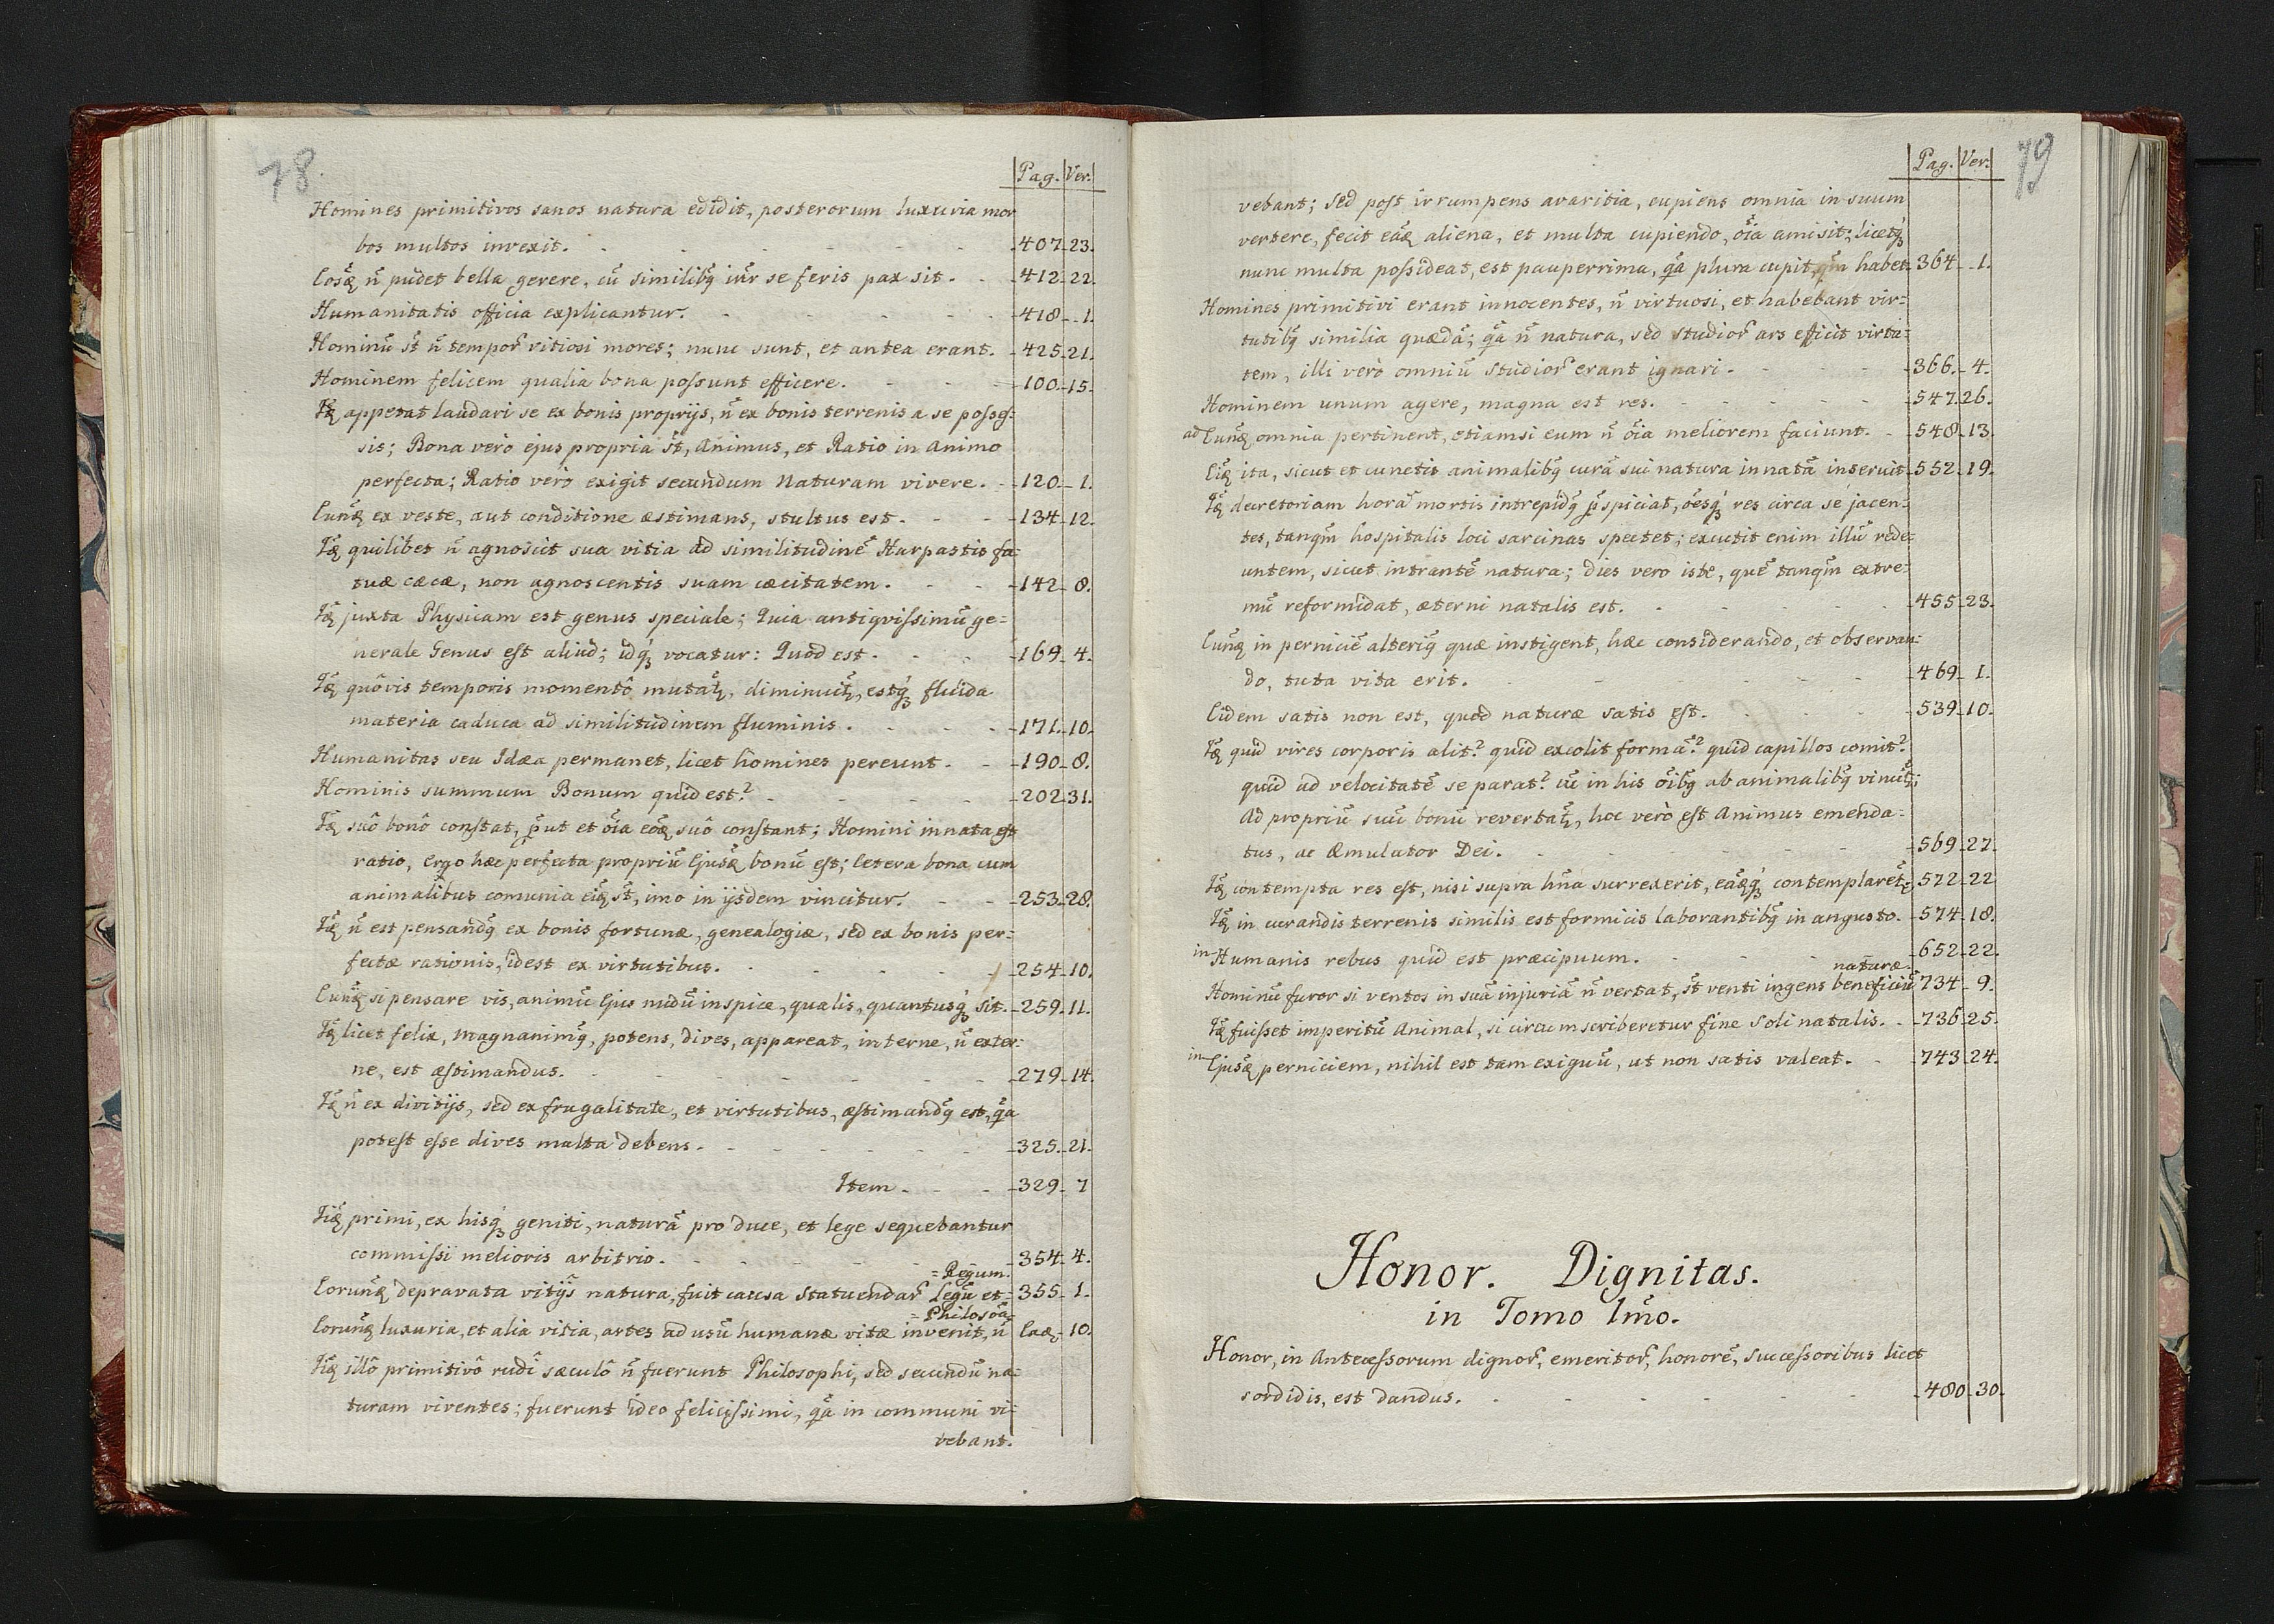 78.
Pag. Ver.
Homines primitivos sanos natura edidit, posterorum luxuria mor
bos multos invexit. 407. 23.
Eosq̃ ñ pudet bella gerere, cũ similibq̃ intr̃ se feris pax sit. 412. 22.
Humanitatis officia explicantur. 418. 1.
Hominũ st̃ ñ tempor̃ vitiosi mores; nunc sunt, et antea erant. 425. 21.
Hominem felicem qualia bona possunt efficere. 100. 15.
appetat laudari se ex bonis proprijs, ñ ex bonis terrenis a se posses:
sis; Bona verò ejus propria st̃, Animus, et Ratio in Animo
perfecta; Ratio verò exigit secundum Naturam vivere. 120. 1.
Eunq̃ ex veste, aut conditione æstimans, stultus est. 134. 12.
Iq̃ quilibet ñ agnoscit sua vitia ad similitudinẽ Harpastis fa:
tuæ cæcæ, non agnoscentis suam cæcitatem. 142. 8.
Iq̃ juxta Physicam est genus speciale; Quia antiqvissimũ ge=
nerale Genus est aliud; idq́ vocatur: Quod est. 169. 4.
Iq̃ quôvis temporis momentô mutat̃, diminuit̃, estq́ fluida
materia caduca ad similitudinem fluminis. 171. 10.
Humanitas seu Idæa permanet, licet homines pereunt. 190. 8.
Hominis summum Bonum quid est? 202. 31.
Iq̃ suô bonô constat, p̃ut et õia eõq̃ suô constant; Homini innata est
ratio, Ergo hæc perfecta propriũ Ejusq̃ bonũ est; Cetera bona cum
animalibus comunia eiq̃ st̃, imo in ijsdem vincitur. 253. 28.
Iq̃ ñ est pensandq̃ ex bonis fortunæ, genealogiæ, sed ex bonis per:
fectæ rationis, idest ex virtutibus. 254. 10.
Eunq̃ si pensare vis, animũ Ejus nudũ inspice, qualis, quantusq́ sit. 259. 11.
Iq̃ licet felix, magnanimq̃, potens, dives, appareat, interne, ñ exter:
ne, est æstimandus. 279. 14.
Iq̃ ñ ex divitijs, sed ex frugalitate, et virtutibus, æstimandq̃ est, qã
potest esse dives multa debens. 325. 21.
Item. 329. 7
Iiq̃ primi, ex hisq́ geniti, naturã pro duce, et lege sequebantur
commissi melioris arbitrio. 354. 4.
= Regum.
Eorunq̃ depravata vitijs natura, fuit causa statuendar̃ Legũ et= 355. 1.
= Philosõa.
Eorunq̃ luxuria, et alia vitia, artes ad usũ humanæ vitæ invenit, ñ Eaq̃. 10.
Iiq̃ illô primitivô rudî sæculô ñ fuerunt Philosophi, sed secundũ na:
turam viventes; fuerunt ideo felicissimi, qã in communi vi=
vebant.
79
Pag. Ver.
vebant; sed post irrumpens avaritia, cupiens omnia in suum
vertere, fecit eãq̃ aliena, et multa cupiendo, õia amisit; licetq́
nunc multa possideat, est pauperrima, qã plura cupit, qm̃ habet. 364. 1.
Homines primitivi erant innocentes, ñ virtuosi, et habebant vir=
tutibq̃ similia quædã; qã ñ natura, sed studior̃ ars efficit virtu:
tem, illi verò omniũ studior̃ erant ignari. 366. 4.
Hominem unum agere, magna est res. 547. 26.
ad Eunq̃ omnia pertinent, etiamsi eum ñ õia meliorem faciunt. 548. 13.
Eiq̃ ita, sicut et cunctis animalibq̃ curã sui natura innatã inseruit. 552. 19.
Iq̃ decretoriam horã mortis intrepidq̃ p̃spiciat, õesq́ res circa se jacen:
tes, tanqm̃ hospitalis loci sarcinas spectet; excutit enim illũ rede:
untem, sicut intrantẽ natura; dies vero iste, quẽ tanqm̃ extre:
mũ reformidat, æterni natalis est. 455. 23.
Eunq̃ in perniciẽ alteriq̃ quæ instigent, hæc considerando, et observan:
do, tuta vita erit. 469. 1.
Eidem satis non est, quod naturæ satis est. 539. 10.
Iq̃ quid vires corporis alit? quid excolit formã? quid capillos comit?
quid ad velocitatẽ se parat? cũ in his õibq̃ ab animalibq̃ vincit̃;
ad propriũ suũ bonũ revertat̃, hoc verò est Animus emenda=
tus, ac Æmulator Dei. 569. 27.
Iq̃ contempta res est, nisi supra hña surrexerit, eãq̃q́ contemplaret̃. 572. 22
Iq̃ in curandis terrenis similis est formicis laborantibq̃ in angusto. 574. 18.
in Humanis rebus quid est præcipuum. 652. 22.
naturæ.
Hominũ furor si ventos in suã injuriã ñ vertat, st̃ venti ingens beneficiũ 734. 9.
Iq̃ fuisset imperitũ Animal, si circumscriberetur fine soli natalis. 736. 25.
in Ejusq̃ perniciem, nihil est tam exiguũ, ut non satis valeat. 743. 24.
Honor. Dignitas.
in Tomo Im̃o.
Honor, in Antecessorum dignor̃, emeritor̃, honorẽ, successoribus licet
sordidis, est dandus. 480. 30.